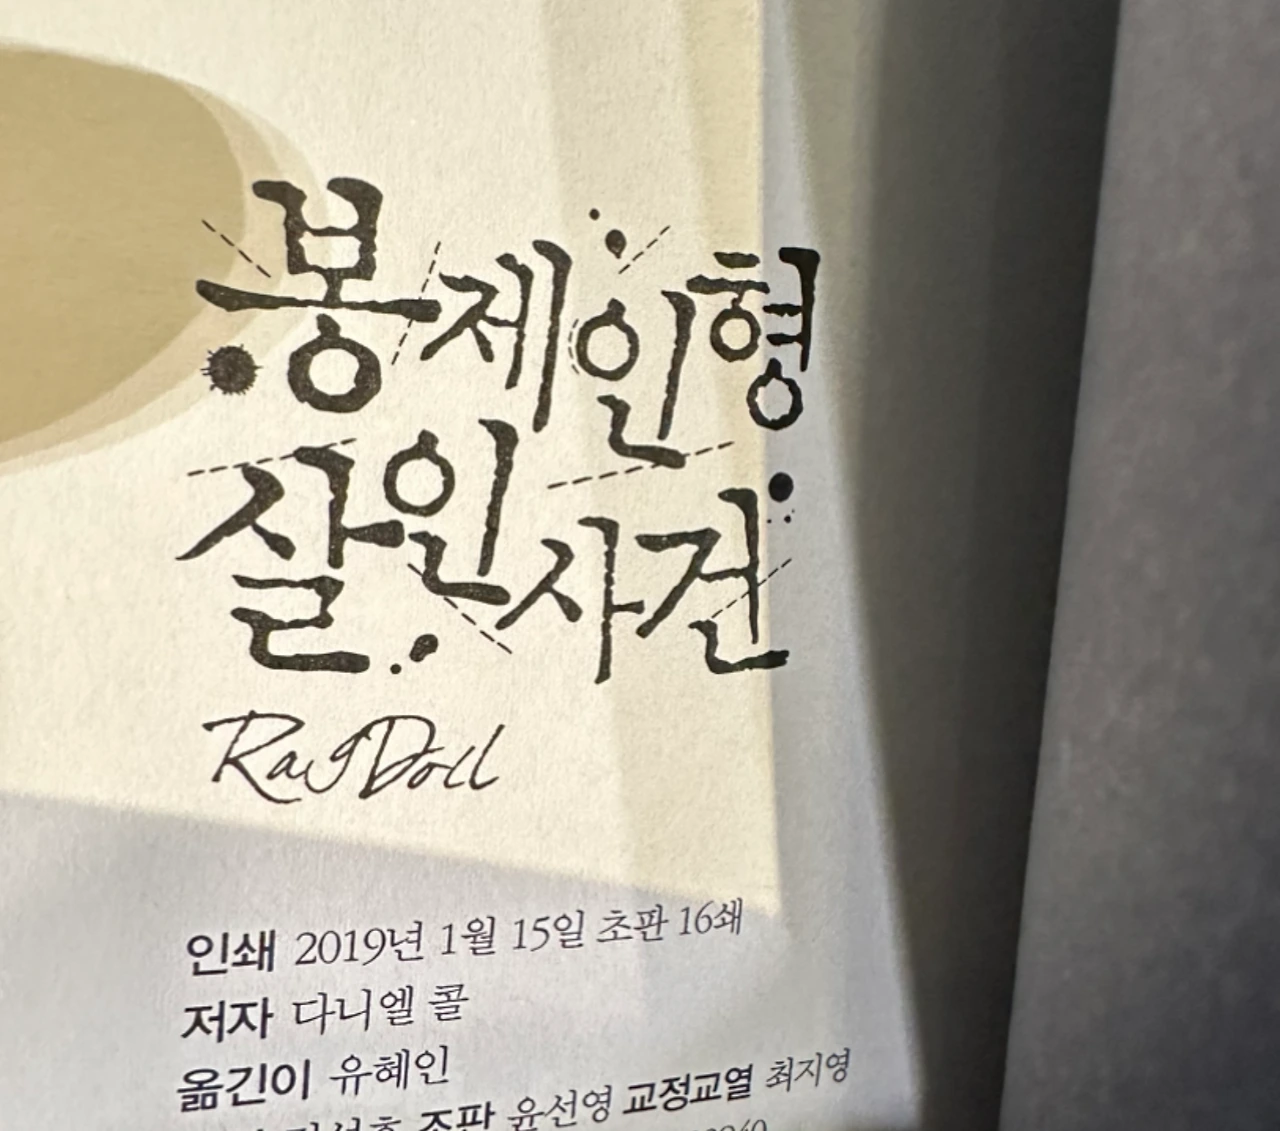 봉제인형
살인사건
RagDoll
인쇄 2019년 1월 15일 초판 16쇄
저자 다니엘 콜
옮긴이 유혜인
조판 윤선영 교정교열 최지영